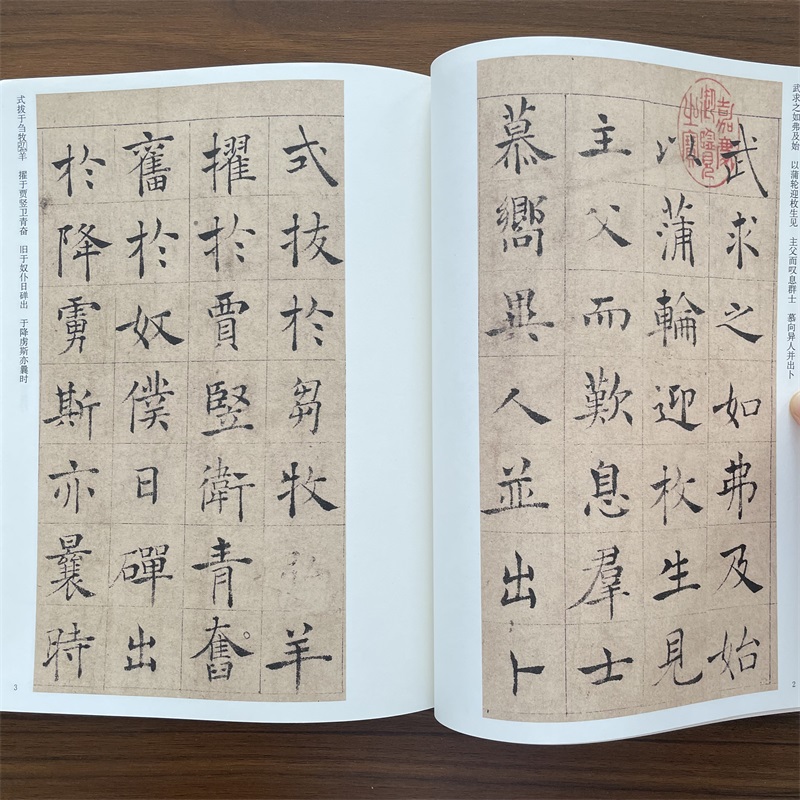 武求之如弗及始　以蒲轮迎枚生见　主父而叹息群士　慕向异人并出卜
武求之如弗及始
以蒲輪迎枚生見
主父而歎息羣士
慕嚮異人並出卜
嘉慶御覽之寶
2
式拔於芻牧羊
擢於賈豎衛青奮
舊於奴僕日磾出
於降虜斯亦曩時
式拔于刍牧弘羊　擢于贾竖卫青奋　旧于奴仆日磾出　于降虏斯亦曩时
3